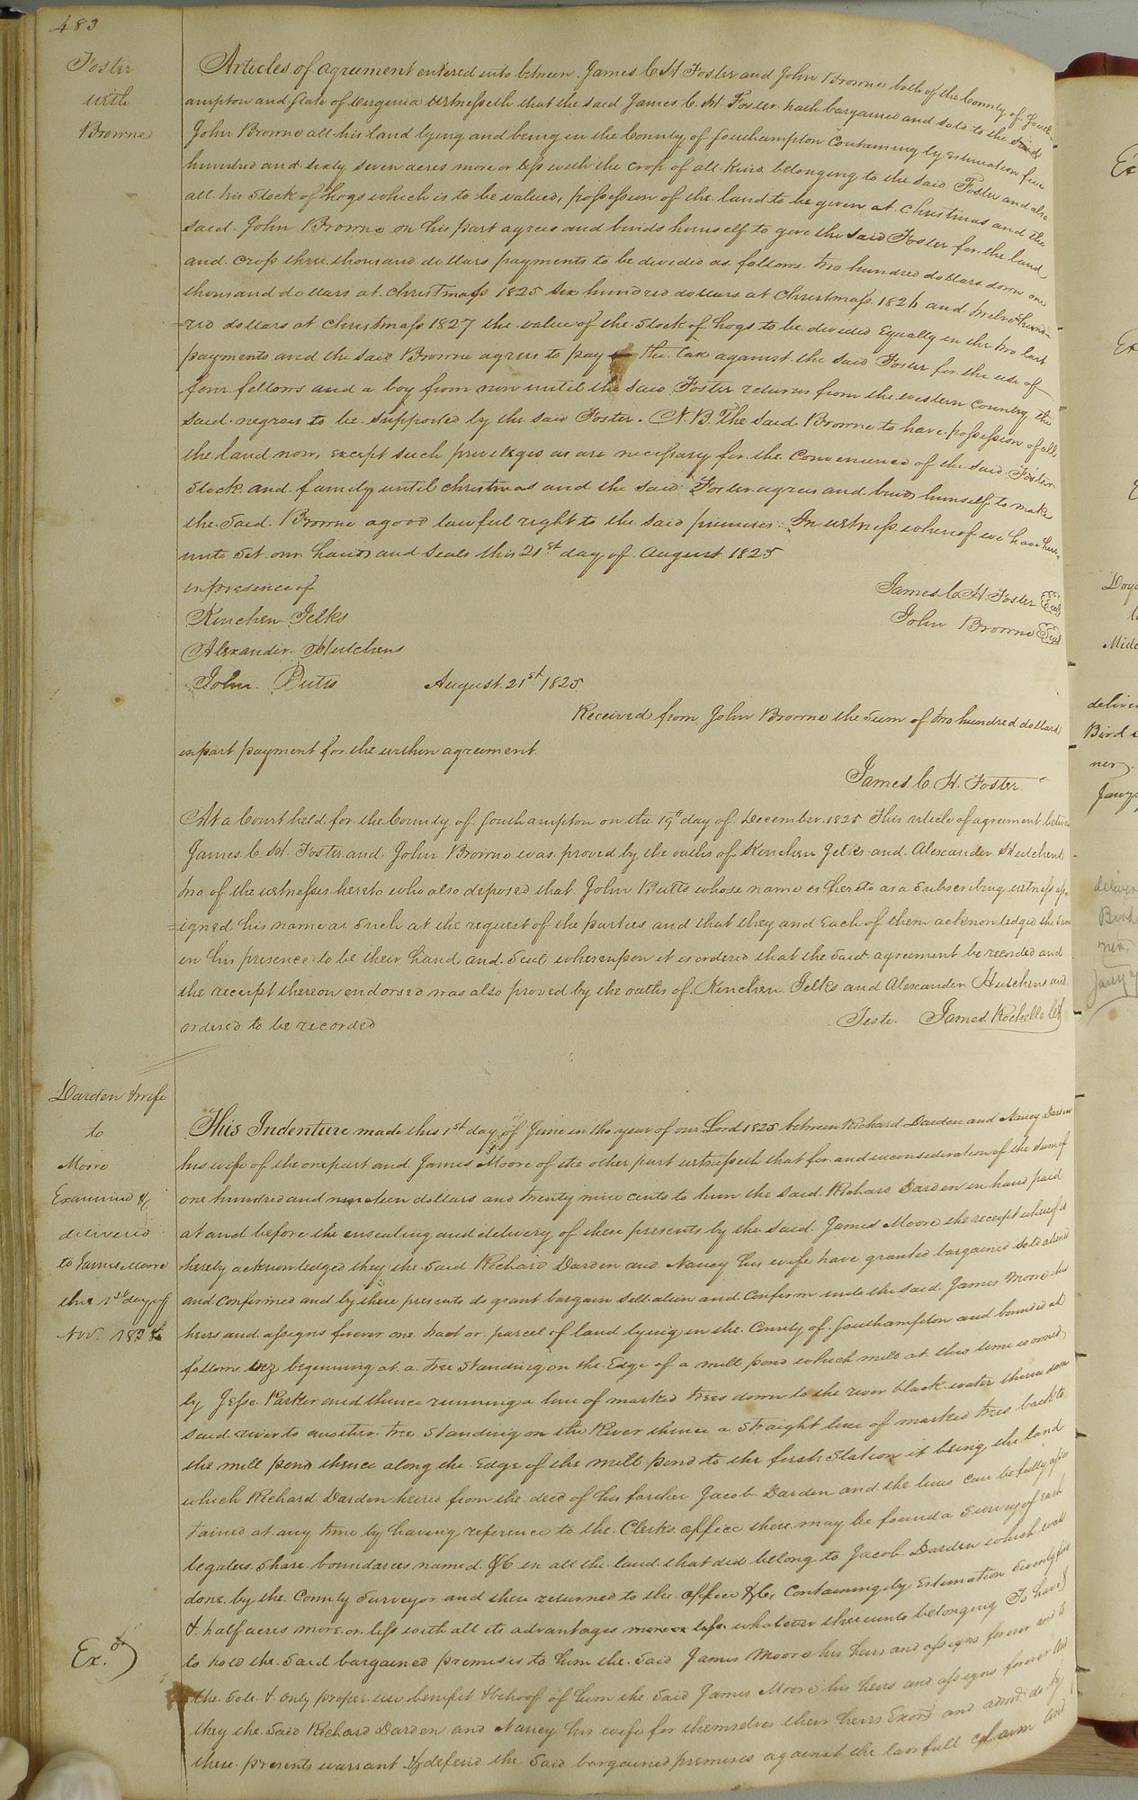 483
Foster
with
Browne
Articles of agreement entered into between James C. H. Foster and John Browne both of the County of South-
ampton and State of Virginia witnesseth that the said James C. H. Foster hath bargained and sold to the said
John Browne all his land lying and being in the County of Southampton Containing by estimation five
hundred and sixty seven acres more or less with the crop of all kind belonging to the said Foster and also
all his Stock of hogs which is to be valued, possession of the land to be given at Christmas and the
said John Browne on his part agrees and binds himself to give the said Foster for the land
and crop three thousand dollars payments to be divided as follows two hundred dollars down one
thousand dollars at Christmass 1825 six hundred dollars at Christmass 1826 and twelve hund-
red dollars at Christmass 1827 the value of the Stock of hogs to be divided Equally in the two last
payments and the said Browne agrees to pay the tax against the said Foster for the use of
four fellows and a boy from now until the said Foster returns from the western Country the
said negroes to be supported by the said Foster. N.B. The said Browne to have possession of all
the land now, except such priveleges as are necessary for the Convenience of the said Foster
Stock and family until christmas and the said Foster agrees and binds himself to make
the said Browne a good lawful right to the said premises In witness whereof we have here-
unto set our hands and Seals this 21st day of August 1825
in presence of
James C. H. Foster Seal
Kinchen Jelks
John Browne Seal
Alexander Hutchens
John Butts
August 21st 1825
Received from John Browne the Sum of two hundred dollars
in part payment for the within agreement.
James C. H. Foster
At a Court held for the County of Southampton on the 19th day of December 1825 This article of agreement between
James C. H. Foster and John Browne was proved by the oaths of Kinchen Jelks and Alexander Hutchens
two of the witnesses hereto who also deposed that John Butts whose name is hereto as a Subscribing witness ass-
igned his name as Such at the request of the parties and that they and Each of them acknowledged the same
in his presence to be their hand and Seal whereupon it is ordered that the Said agreement be recorded and
the receipt thereon endorsed was also proved by the oaths of Kinchen Jelks and Alexander Hutchens and
ordered to be recorded
Teste James Rochelle Clk
Darden & wife
to
Moore
Examined &
delivered
to James Moore
this 1st day of
Nov. 1828
This Indenture made this 1st day of June in the year of our Lord 1825 between Richard Darden and Nancy Darden
his wife of the one part and James Moore of the other part witnesseth that for and in consideration of the sum of
one hundred and nineteen dollars and twenty nine cents to him the said Richard Darden in hand paid
at and before the ensealing and delivery of these presents by the said James Moore the receipt whereof is
hereby acknowledged they the Said Richard Darden and Nancy his wife have granted bargained sold aliened
and Confirmed and by these presents do grant bargain sell alien and Confirm unto the said James Moore his
heirs and assigns forever one tract or parcel of land lying in the County of Southampton and bounded as
follows viz beginning at a tree Standing on the Edge of a mill pond which mill at this time is owned
by Jesse Parker and thence running a line of marked trees down to the river black water thence down
said river to another tree Standing on the River thence a Straight line of marked trees back to
the mill pond thence along the Edge of the mill pond to the first Station it being the land
which Richard Darden heired from the deed of his farther Jacob Darden and the lines can be fully asser
tained at any time by having reference to the Clerks office there may be found a Survey of each
legatees Share boundaries named &C in all the land that did belong to Jacob Darden which was
done by the County Surveyor and then returned to the office &C, Containing by Estimation
& half acres more or less with all its advantages whatever thereunto belonging To have &
to hold the Said bargained premises to him the Said James Moore his heirs and assigns forever and to
Exd
the Sole & only proper use benefit & behoof of him the Said James Moore his heirs and assigns forever and
they the Said Richard Darden and Nancy his wife for themselves their heirs Exors and admrs do by
these presents warrant & defend the Said bargained premises against the lawfull claim and